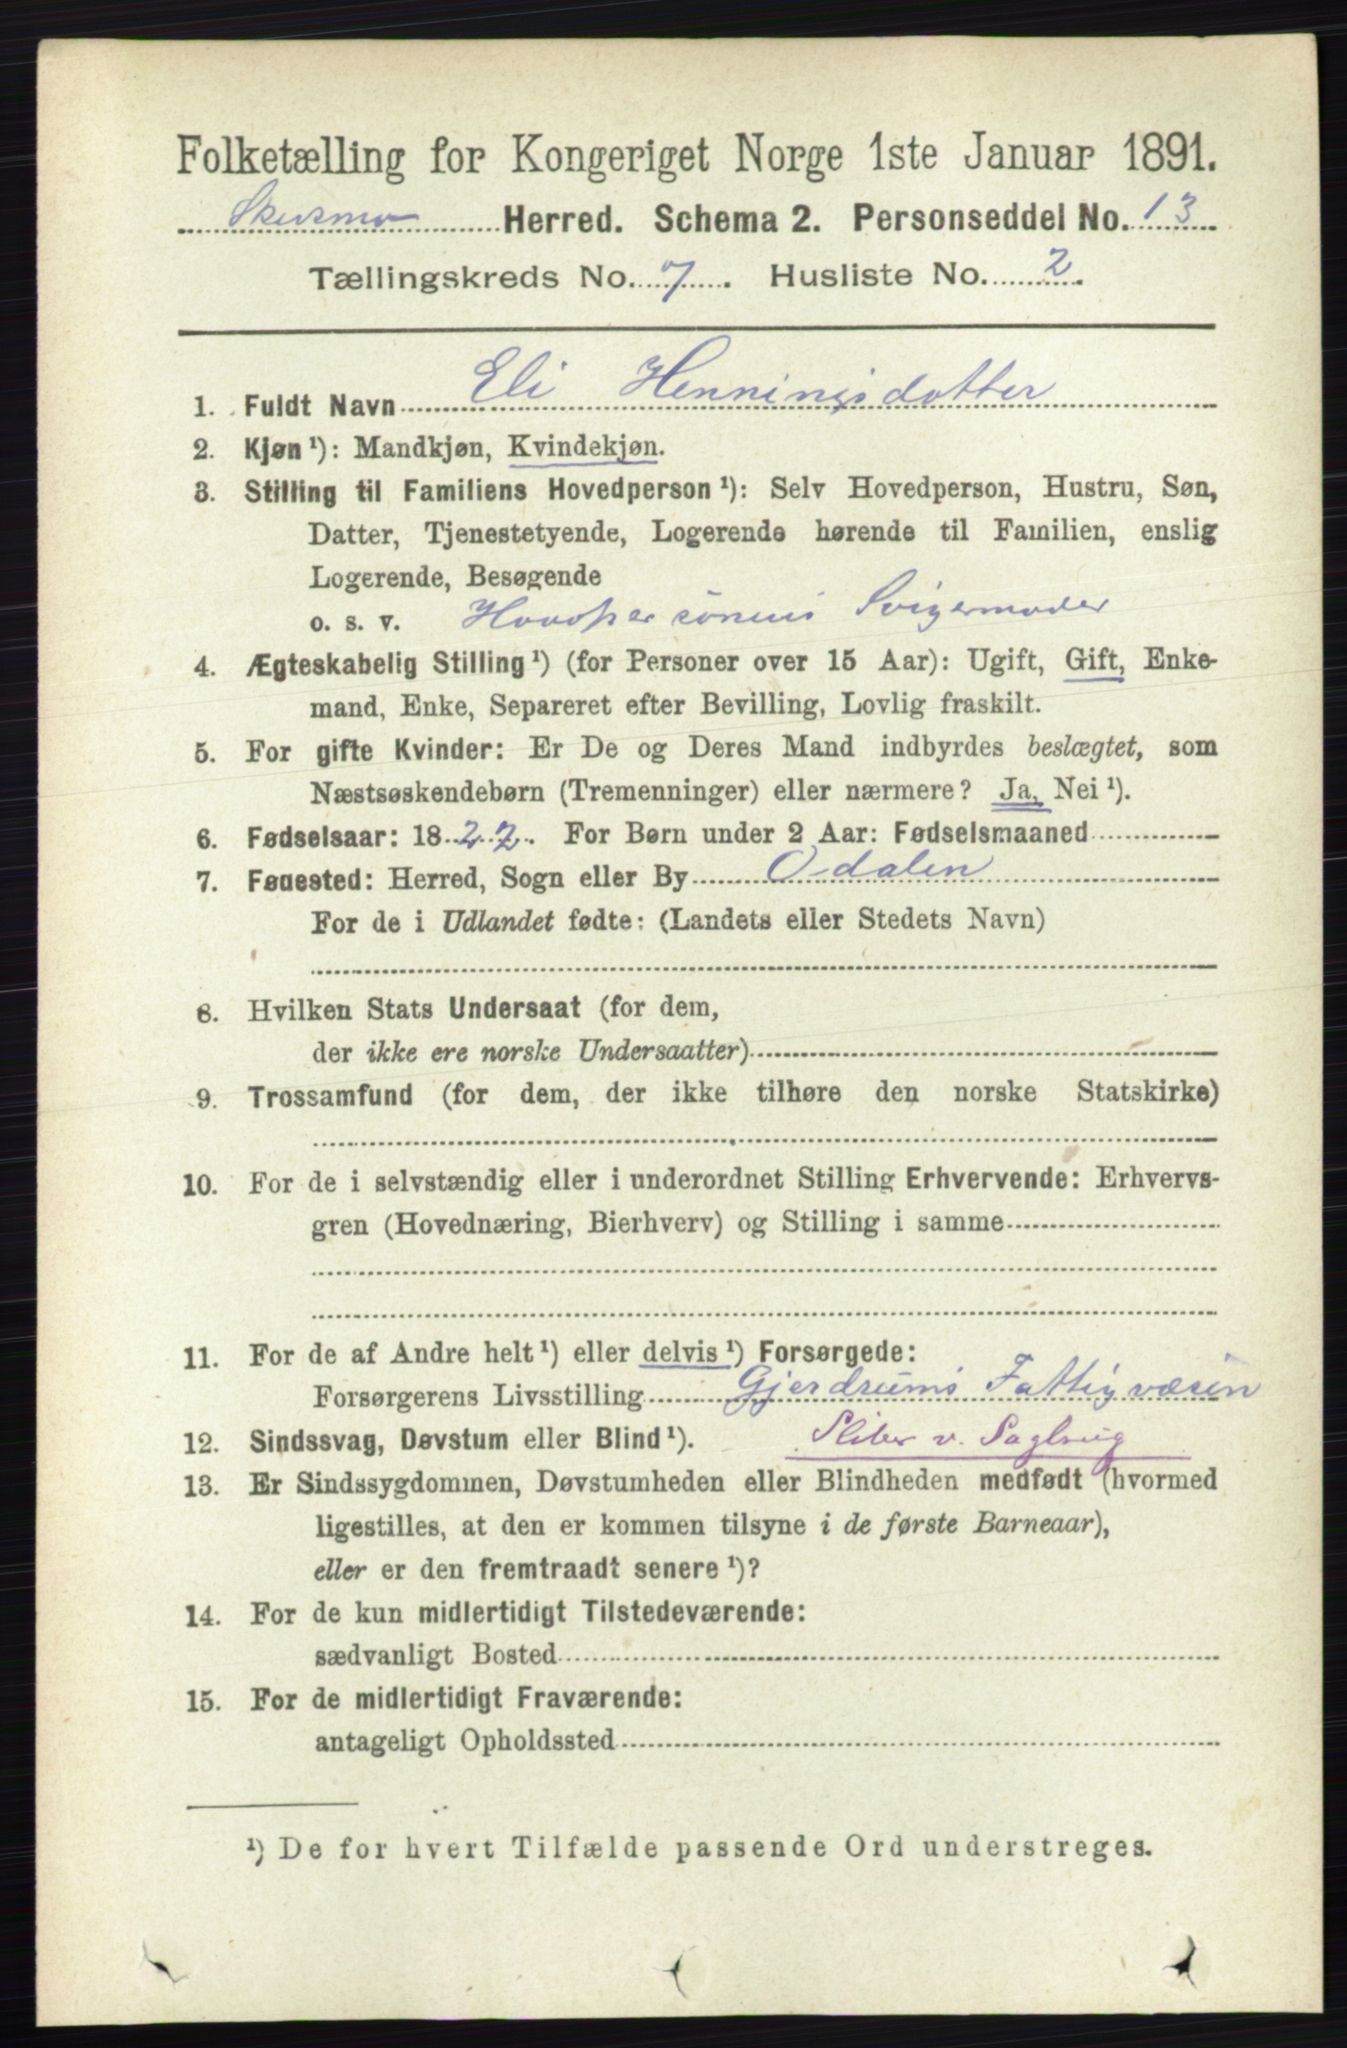 Folketælling for Kongeriget Norge 1ste Januar 1891.
Skedsmo Herred. Schema 2. Personseddel No. 13
Tællingskreds No. 7. Husliste No. 2.
1. Fuldt Navn Eli Henningsdatter
2. Kjøn ¹): Mandkjøn, Kvindekjøn.
3. Stilling til Familiens Hovedperson ¹): Selv Hovedperson, Hustru, Søn,
Datter, Tjenestetyende, Logerende hørende til Familien, enslig
Logerende, Besøgende
o. s. v. Hovedpersonens Svigermoder
4. Ægteskabelig Stilling ¹) (for Personer over 15 Aar): Ugift, Gift, Enke-
mand, Enke, Separeret efter Bevilling, Lovlig fraskilt.
5. For gifte Kvinder: Er De og Deres Mand indbyrdes beslægtet, som
Næstsøskendebørn (Tremenninger) eller nærmere? Ja, Nei ¹).
6. Fødselsaar: 1827. For Børn under 2 Aar: Fødselsmaaned
7. Fødested: Herred, Sogn eller By Odalen
For de i Udlandet fødte: (Landets eller Stedets Navn)
8. Hvilken Stats Undersaat (for dem,
der ikke ere norske Undersaatter)
9. Trossamfund (for dem, der ikke tilhøre den norske Statskirke)
10. For de i selvstændig eller i underordnet Stilling Erhvervende: Erhvervs-
gren (Hovednæring, Bierhverv) og Stilling i samme
11. For de af Andre helt ¹) eller delvis ¹) Forsørgede:
Forsørgerens Livsstilling Gjerdrums Fattigvæsen
12. Sindssvag, Døvstum eller Blind ¹). Sliber v. Sagbrug
13. Er Sindssygdommen, Døvstumheden eller Blindheden medfødt (hvormed
ligestilles, at den er kommen tilsyne i de første Barneaar),
eller er den fremtraadt senere ¹)?
14. For de kun midlertidigt Tilstedeværende:
sædvanligt Bosted
15. For de midlertidigt Fraværende:
antageligt Opholdssted
¹) De for hvert Tilfælde passende Ord understreges.